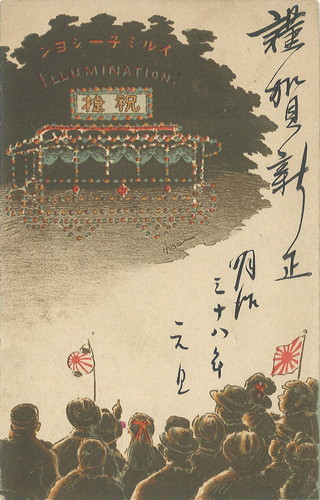 イルミ子ーシヨン
ILLUMINATION
祝捷
謹賀新正
明治
三十八年
元旦